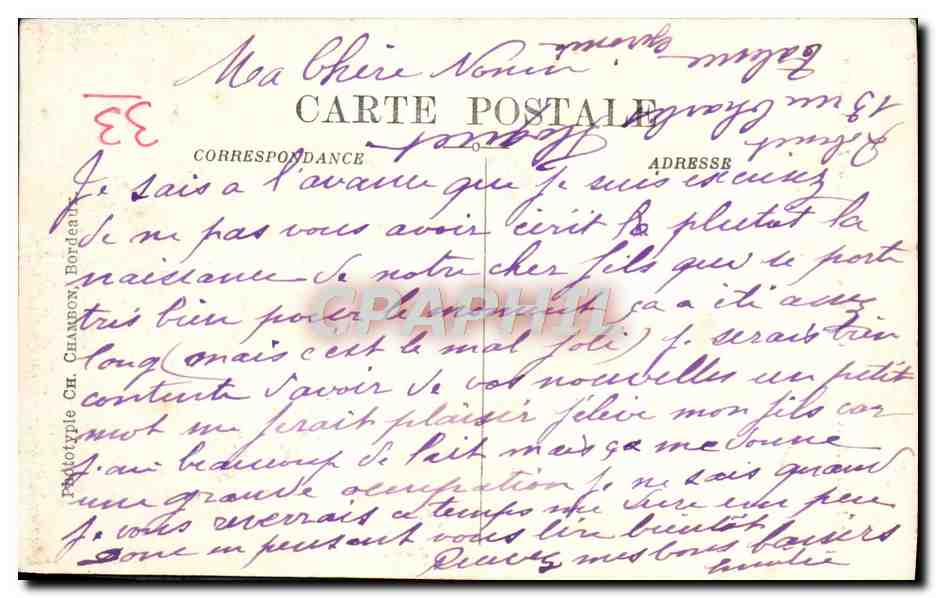 Ma Chère Nonin
CARTE POSTALE
CORRESPONDANCE
ADRESSE
33
Talence
Gironde
13 rue Charles
Je sais a l'avance que je suis excusez
de ne pas vous avoir écrit le plutot la
naissance de notre cher fils qui se porte
tres bien pour le moment, ça a été assez
long (mais c'est le mal joli) je serais bien
contente d'avoir de vos nouvelles un petit
mot me ferait plaisir j'élève mon fils car
j'ai beaucoup de lait mais ça me donne
une grande occupation je ne sais quand
je vous reverrais ce temps me dure un peu
donc en pensant vous lire bientôt
Recevez mes bons baisers
Phototypie CH. CHAMBON, Bordeaux
CPAPHIL